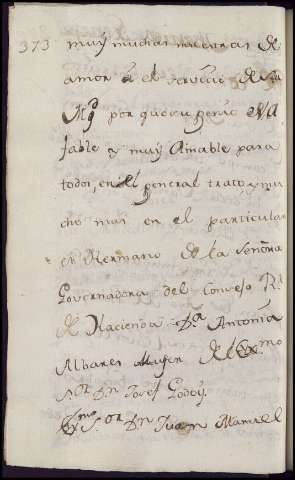 373 muy muchas muestras de
amor á el servicio de Su
Mg.d porque su genio es A
fable y muy Amable para
todos, en el general trato y mu
cho mas en el particular
es Hermano de la Señora
Governadora del Consejo R.l
de Hacienda D.ª Antonia
Albares Muger del Exmo
S.or D.n Josef Godoy.
Ex.mo S.or D.n Juan Manuel